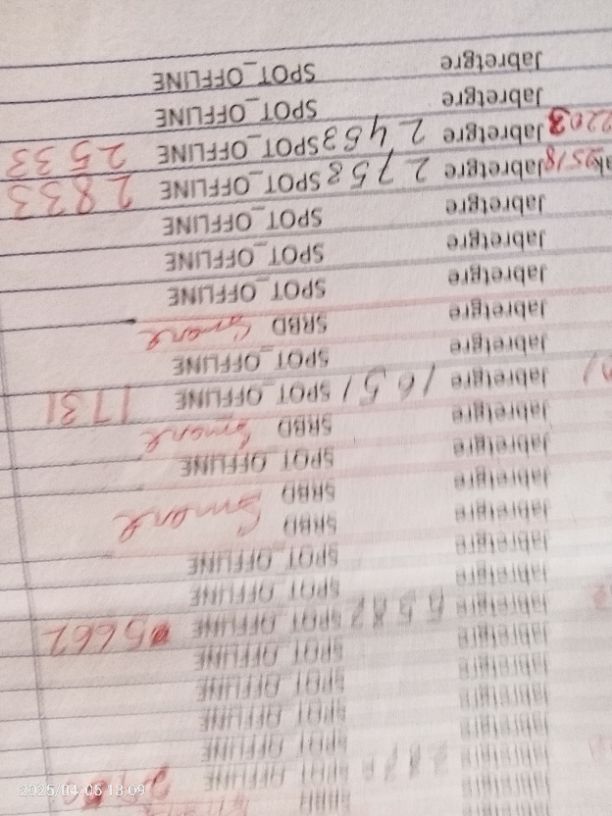 Jabretgre SRBD
Jabretgre SPOT_OFFLINE
Jabretgre SPOT_OFFLINE
Jabretgre SPOT_OFFLINE
Jabretgre SPOT_OFFLINE
Jabretgre SPOT_OFFLINE
Jabretgre 5582 SPOT_OFFLINE 5662
Jabretgre SPOT_OFFLINE
Jabretgre SPOT_OFFLINE
Jabretgre SRBD
Jabretgre SRBD
Jabretgre SPOT_OFFLINE
Jabretgre SRBD
Jabretgre 1651 SPOT_OFFLINE 1731
Jabretgre SPOT_OFFLINE
Jabretgre SRBD
Jabretgre SPOT_OFFLINE
Jabretgre SPOT_OFFLINE
Jabretgre SPOT_OFFLINE
Jabretgre 2753 SPOT_OFFLINE 2833
Jabretgre 2453 SPOT_OFFLINE 2533
Jabretgre SPOT_OFFLINE
Jabretgre SPOT_OFFLINE
2025/04/06 18:09